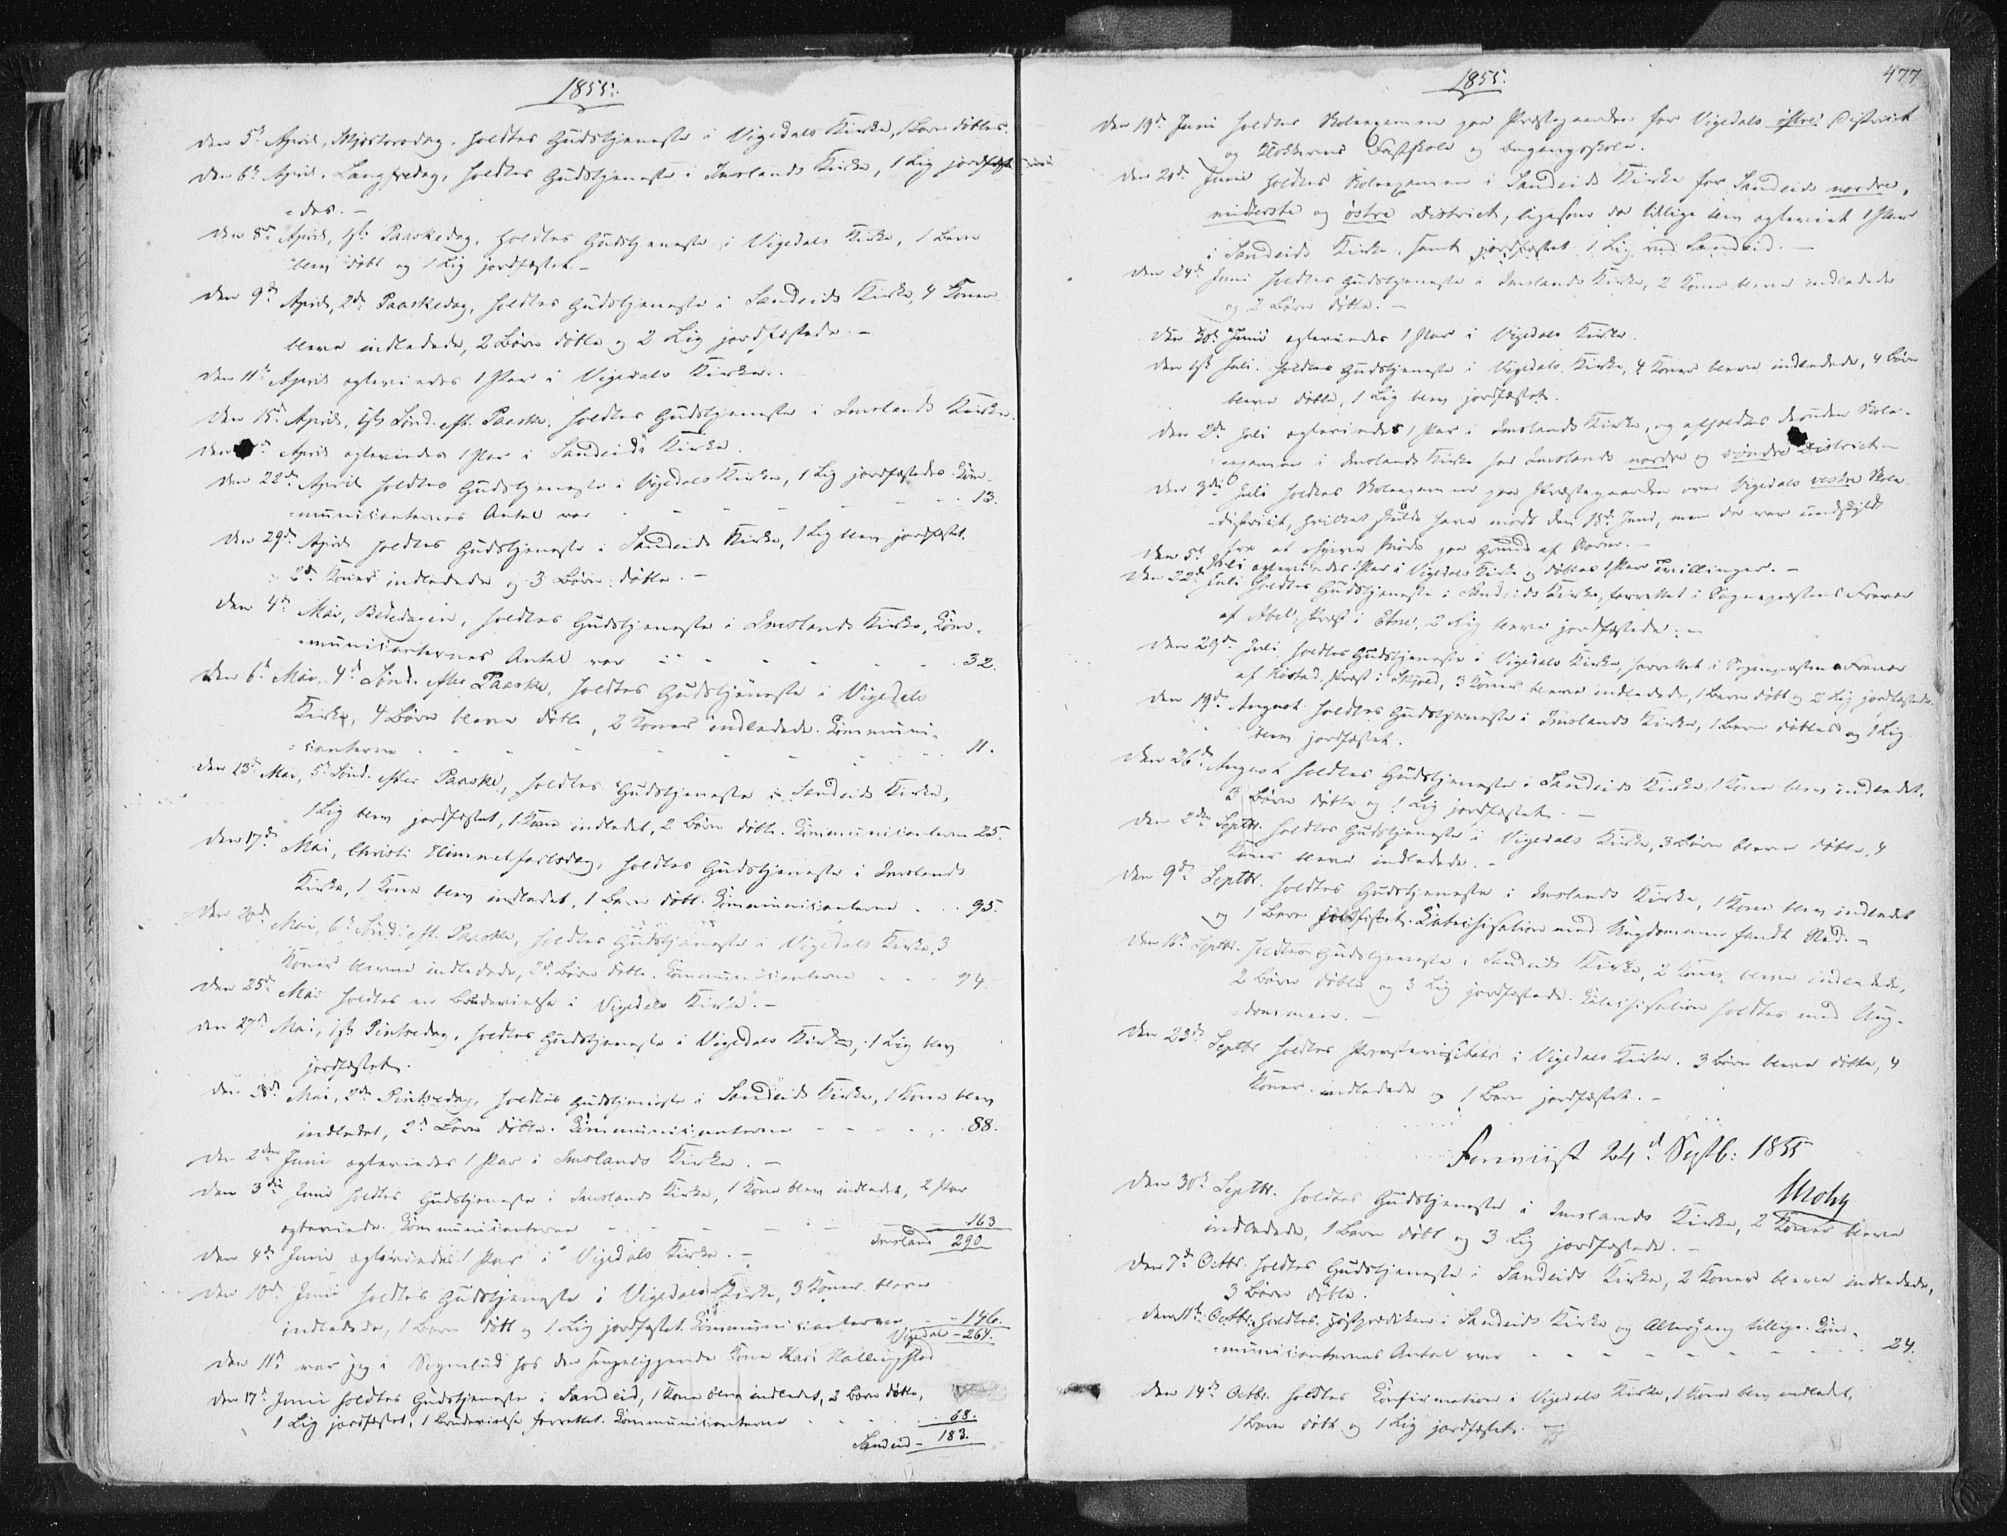 1855.
Den 5te April, Skjertorsdag, holdtes Gudstjeneste i Vigedals Kirke, 1 Barn døbtes.
Den 6te April, Langfredag, holdtes Gudstjeneste i Imslands Kirke, 1 Lig jordfæste-
des. –
Den 8de April, 1ste Paaskedag, holdtes Gudstjeneste i Vigedals Kirke, 1 Barn
blev døbt og 1 Lig jordfæstet. –
Den 9de April, 2den Paaskedag, holdtes Gudstjeneste i Sandeids Kirke, 4 Koner
bleve indledede, 2 Børn døbte og 2 Lig jordfæstede. –
Den 11te April ægteviedes 1 Par i Vigedals Kirke.
Den 15de April, 1ste Sønd. eft. Paaske, holdtes Gudstjeneste i Imslands Kirke.
Den April ægteviedes 1 Par i Sandeids Kirke.
Den 22de April holdtes Gudstjeneste i Vigedals Kirke, 1 Lig jordfæstedes. Com-
municanternes Antal var - - - - 13.
Den 29de April holdtes Gudstjeneste i Sandeids Kirke, 1 Lig blev jordfæstet,
2de Koner indledede og 3 Børn døbte. –
Den 4de Mai, Bededagen, holdtes Gudstjeneste i Imslands Kirke, Com-
municanternes Antal var - - - - 32.
Den 6te Mai, 4de Sønd. efter Paaske, holdtes Gudstjeneste i Vigedals
Kirke, 4 Børn bleve døbte, 2 Koner indledede. Communi-
canterne - - - - 11.
Den 13de Mai, 5te Sønd. efter Paaske, holdtes Gudstjeneste i Sandeids Kirke,
1 Lig blev jordfæstet, 1 Kone indledet, 2 Børn døbte. Communicanterne 25.
Den 17de Mai, Christi Himmelfartsdag, holdtes Gudstjeneste i Imslands
Kirke, 1 Kone blev indledet, 1 Barn døbt. Communicanterne - - 95.
Den 20de Mai, 6te Sønd. eft. Paaske, holdtes Gudstjeneste i Vigedals Kirke, 3
Koner bleve indledede, 2de Børn døbte. Communicanterne - - 94
Den 25de Mai holdtes en Brudevielse i Vigedals Kirke. –
Den 27de Mai, 1ste Pintsedag, holdtes Gudstjeneste i Vigedals Kirke, 1 Lig blev
jordfæstet.
Den 28de Mai, 2den Pintsedag, holdtes Gudstjeneste i Sandeids Kirke, 1 Kone blev
indledet, 2de Børn døbte. Communicanterne - - - - 88.
Den 2den Juni ægteviedes 1 Par i Imslands Kirke. –
Den 3die Juni holdtes Gudstjeneste i Imslands Kirke, 1 Kone blev indledet, 2 Par
ægteviede. Communicanterne - - - - 163
Imsland 290
Den 4de Juni ægteviedes 1 Par i Vigedals Kirke. –
Den 10de Juni holdtes Gudstjeneste i Vigedals Kirke, 3 Koner bleve
indledede, 1 Barn døbt og 1 Lig jordfæstet. Communicanterne - 146.
Vigedal - 264.
Den 11te var jeg i Sognebud hos den sengeliggende Kone Kari Hallingstad
Den 17de Juni holdtes Gudstjeneste i Sandeid, 1 Kone blev indledet, 2 Børn døbte,
1 Lig jordfæstet, 1 Brudevielse forrettet. Communicanterne - - 68.
Sandeid - 183.
1855.
477
Den 19de Juni holdtes Skoleexamen paa Præstegaarden for Vigedals østre District
og Klokkerens Fastskole og Omgangsskole.
Den 20de Juni holdtes Skoleexamen i Sandeids Kirke for Sandeids nordre,
midterste og østre District, ligesom der tillige blev ægteviet 1 Par
i Sandeids Kirke, samt jordfæstet 1 Lig ved Sandeid. –
Den 24de Juni holdtes Gudstjeneste i Imslands Kirke, 2 Koner bleve indledede
og 2 Børn døbte. –
Den 30te Juni ægteviedes 1 Par i Vigedals Kirke.
Den 1ste Juli holdtes Gudstjeneste i Vigedals Kirke, 4 Koner bleve indledede, 4 Børn
bleve døbte, 1 Lig blev jordfæstet.
Den 2den Juli ægteviedes 1 Par i Imslands Kirke, og afholdtes desuden Skole-
examen i Imslands Kirke for Imslands nordre og søndre District –
Den 3die Juli holdtes Skoleexamen paa Præstegaarden over Vigedals vestre Skole-
district, hvilket skulde have mødt den 18de Juni, men da var undskyldt
fra at give Møde paa Grund af
Den 5te Juli ægteviedes 1 Par i Vigedals Kirke og døbtes 1 Par Tvillinger. –
Den 22de Juli holdtes Gudstjeneste i Sandeids Kirke, forrettet i Sognepræstens Fravær
af Abel, Præst i Etne, 2 Lig bleve jordfæstede. –
Den 29de Juli holdtes Gudstjeneste i Vigedals Kirke, forrettet i Sognepræstens Fravær
af Præst i Skjold, 3 Koner bleve indledede, 1 Barn døbt og 2 Lig jordfæstede.
Den 19de August holdtes Gudstjeneste i Imslands Kirke, 1 Barn døbtes og 1 Lig
blev jordfæstet.
Den 26de August holdtes Gudstjeneste i Sandeids Kirke, 1 Kone blev indledet,
3 Børn døbte og 1 Lig jordfæstet. –
Den 2den Septbr. holdtes Gudstjeneste i Vigedals Kirke, 3 Børn bleve døbte, 4
Koner bleve indledede. –
Den 9de Septbr. holdtes Gudstjeneste i Imslands Kirke, 1 Kone blev indledet
og 1 Barn jordfæstet. Catechisation med Ungdommen fandt Sted. –
Den 16de Septbr. holdtes Gudstjeneste i Sandeids Kirke, 2 Koner bleve indledede,
2 Børn døbte og 3 Lig jordfæstede. Catechisation holdtes med Ung-
dommen. –
Den 23de Septbr holdtes Provstevisitats i Vigedals Kirke. 3 Børn bleve døbte, 4
Koner indledede og 1 Barn jordfæstet. –
24de Septb: 1855
Den 30te Septbr. holdtes Gudstjeneste i Imslands Kirke, 2 Koner bleve
indledede, 1 Barn døbt og 3 Lig jordfæstede. –
Den 7de Octbr. holdtes Gudstjeneste i Sandeids Kirke, 2 Koner bleve indledede,
3 Børn døbte.
Den 11te Octbr. holdtes Høstprædiken i Sandeids Kirke og Altergang tillige. Com-
municanternes Antal var - - - - 24.
Den 14de Octbr. holdtes Confirmation i Vigedals Kirke, 1 Kone blev indledet,
1 Barn døbt og 1 Lig jordfæstet. –